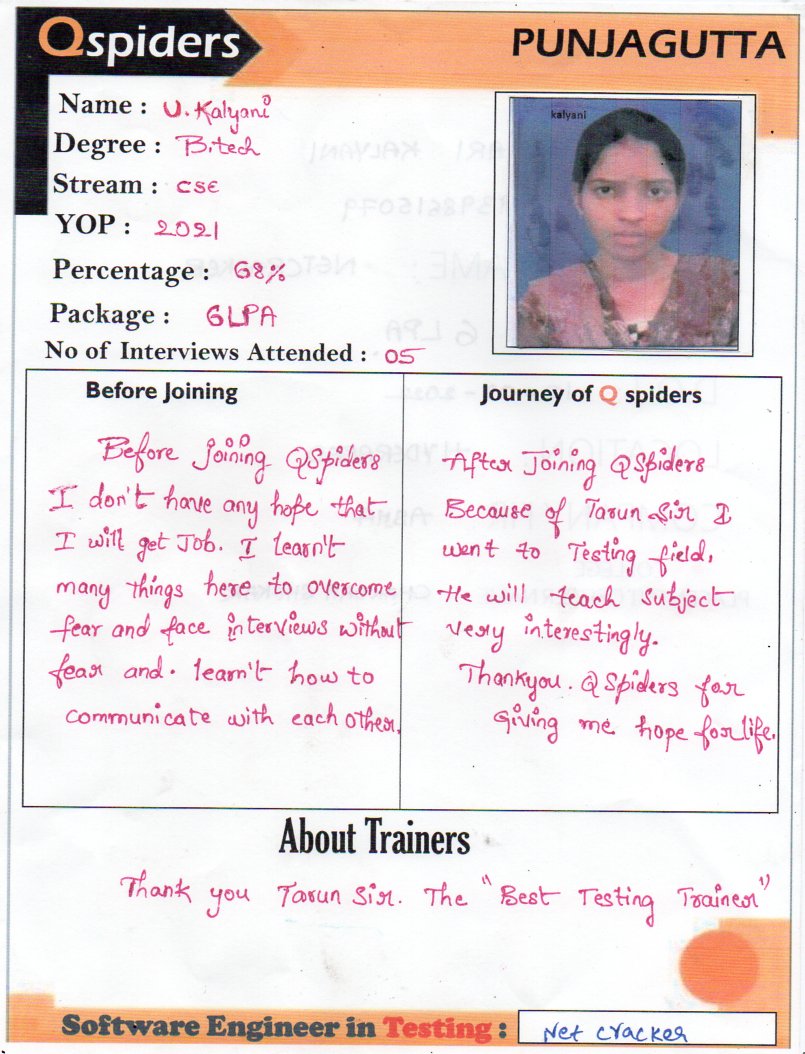 Qspiders
PUNJAGUTTA
Name : U. Kalyani
Degree : B.tech
Stream : CSE
YOP : 2021
Percentage : 68%
Package : 6LPA
No of Interviews Attended : 05
kalyani
Before Joining
Before Joining QSpiders
I don't have any hope that
I will get Job. I learn't
many things here to overcome
fear and face interviews without
fear and. learn't how to
communicate with each other.
Journey of Q spiders
After Joining QSpiders
Because of Tarun Sir I
went to Testing field.
He will teach subject
very interestingly.
Thankyou. QSpiders for
Giving me hope for life.
About Trainers
Thank you Tarun Sir. The "Best Testing Trainer"
Software Engineer in Testing : Net cracker